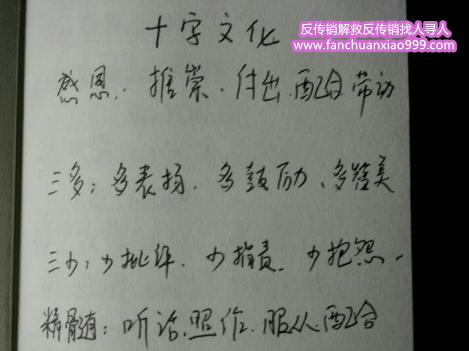 反传销解救反传销找人寻人
www.fanchuanxiao999.com
十字文化
感恩、推崇、付出、配合、带动
三多：多表扬、多鼓励、多赞美
三少：少批评、少指责、少抱怨、
精髓：听话、照作、服从、配合